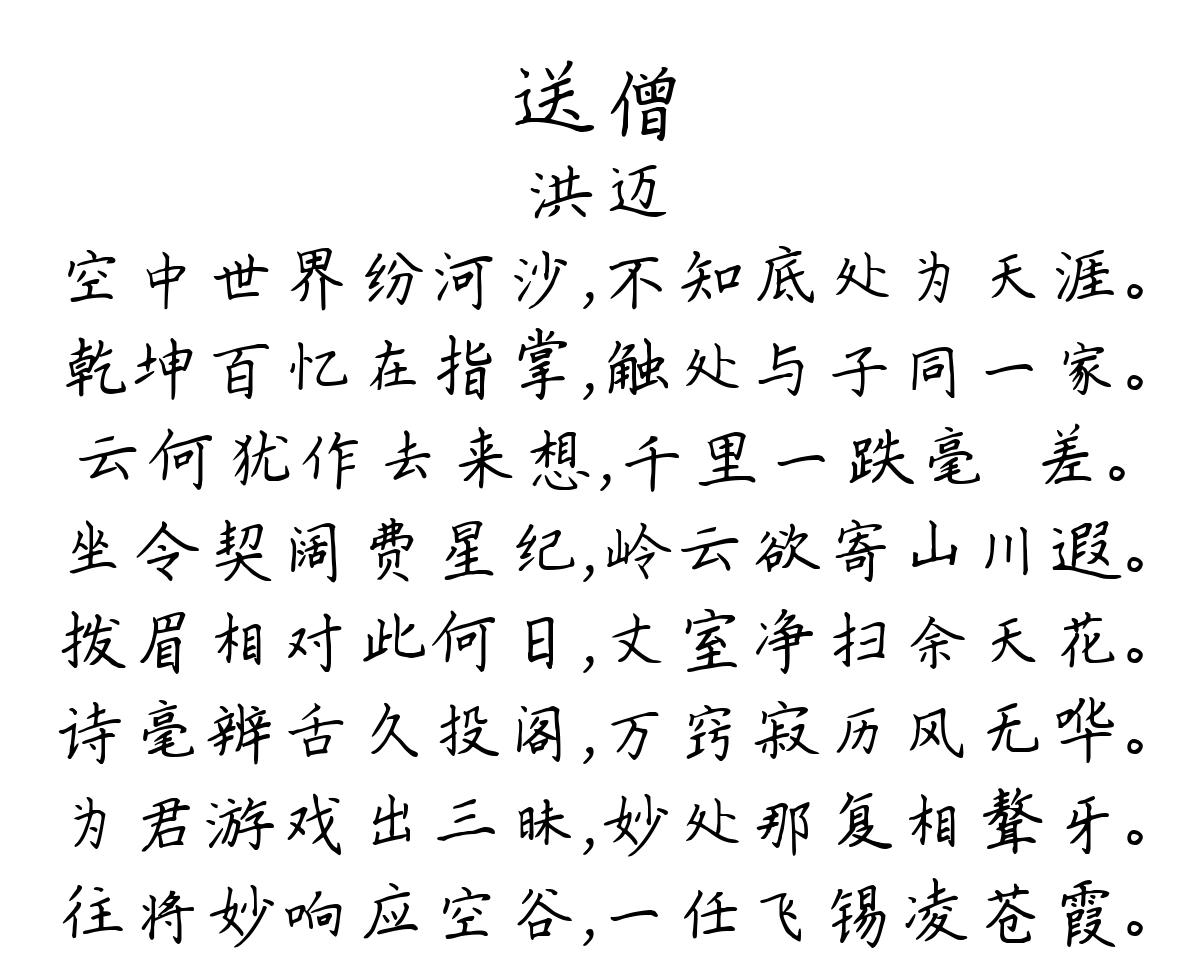 送僧
洪迈
空中世界纷河沙,不知底处为天涯。
乾坤百忆在指掌,触处与子同一家。
云何犹作去来想,千里一跌毫 差。
坐令契阔费星纪,岭云欲寄山川遐。
拨眉相对此何日,丈室净扫余天花。
诗毫辨舌久投阁,万窍寂历风无哗。
为君游戏出三昧,妙处那复相聱牙。
往将妙响应空谷,一任飞锡凌苍霞。